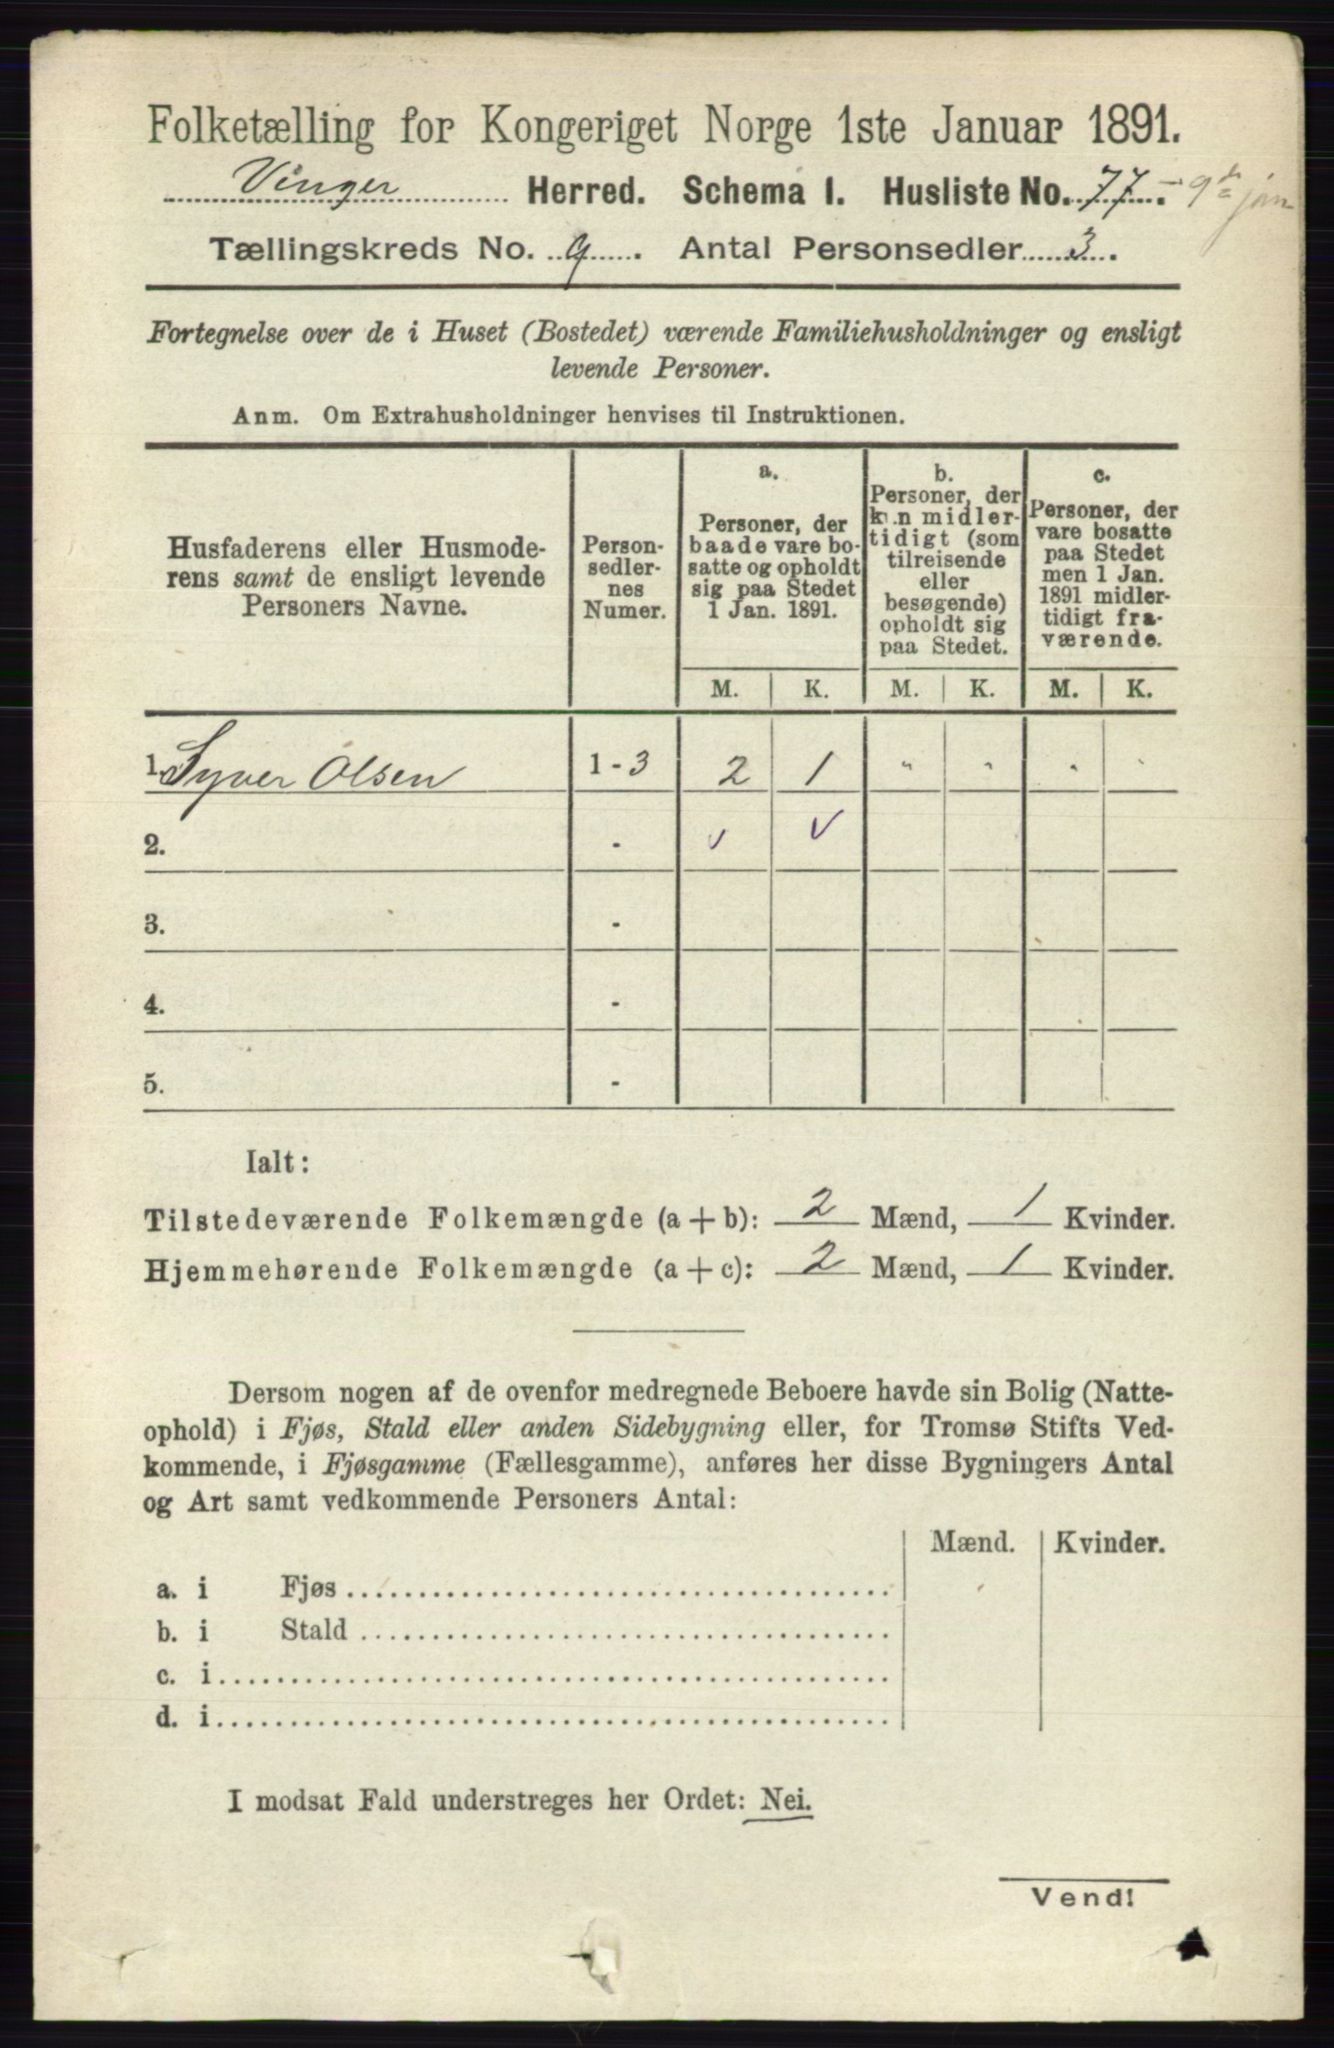 Folketælling for Kongeriget Norge 1ste Januar 1891.
Vinger Herred. Schema I. Husliste No. 77. - 9de jan
Tællingskreds No. 9. Antal Personsedler 3.
Fortegnelse over de i Huset (Bostedet) værende Familiehusholdninger og ensligt
levende Personer.
Anm. Om Extrahusholdninger henvises til Instruktionen.
Husfaderens eller Husmode-
rens samt de ensligt levende
Personers Navne.
Person-
sedler-
nes
Numer.
a.
Personer, der
baade vare bo-
satte og opholdt
sig paa Stedet
1 Jan. 1891.
b.
Personer, der
kun midler-
tidigt (som
tilreisende
eller
besøgende)
opholdt sig
paa Stedet.
c.
Personer, der
vare bosatte
paa Stedet
men 1 Jan.
1891 midler-
tidigt fra-
værende.
M. K. M. K. M. K.
1. Syver Olsen 1-3 2 1 " " " "
2. - v v
3. -
4. -
5. -
Ialt:
Tilstedeværende Folkemængde (a+b): 2 Mænd, 1 Kvinder.
Hjemmehørende Folkemængde (a+c): 2 Mænd, 1 Kvinder.
Dersom nogen af de ovenfor medregnede Beboere havde sin Bolig (Natte-
ophold) i Fjøs, Stald eller anden Sidebygning eller, for Tromsø Stifts Ved-
kommende, i Fjøsgamme (Fællesgamme), anføres her disse Bygningers Antal
og Art samt vedkommende Personers Antal:
Mænd. Kvinder.
a. i Fjøs
b. i Stald
c. i
d. i
I modsat Fald understreges her Ordet: Nei.
Vend!